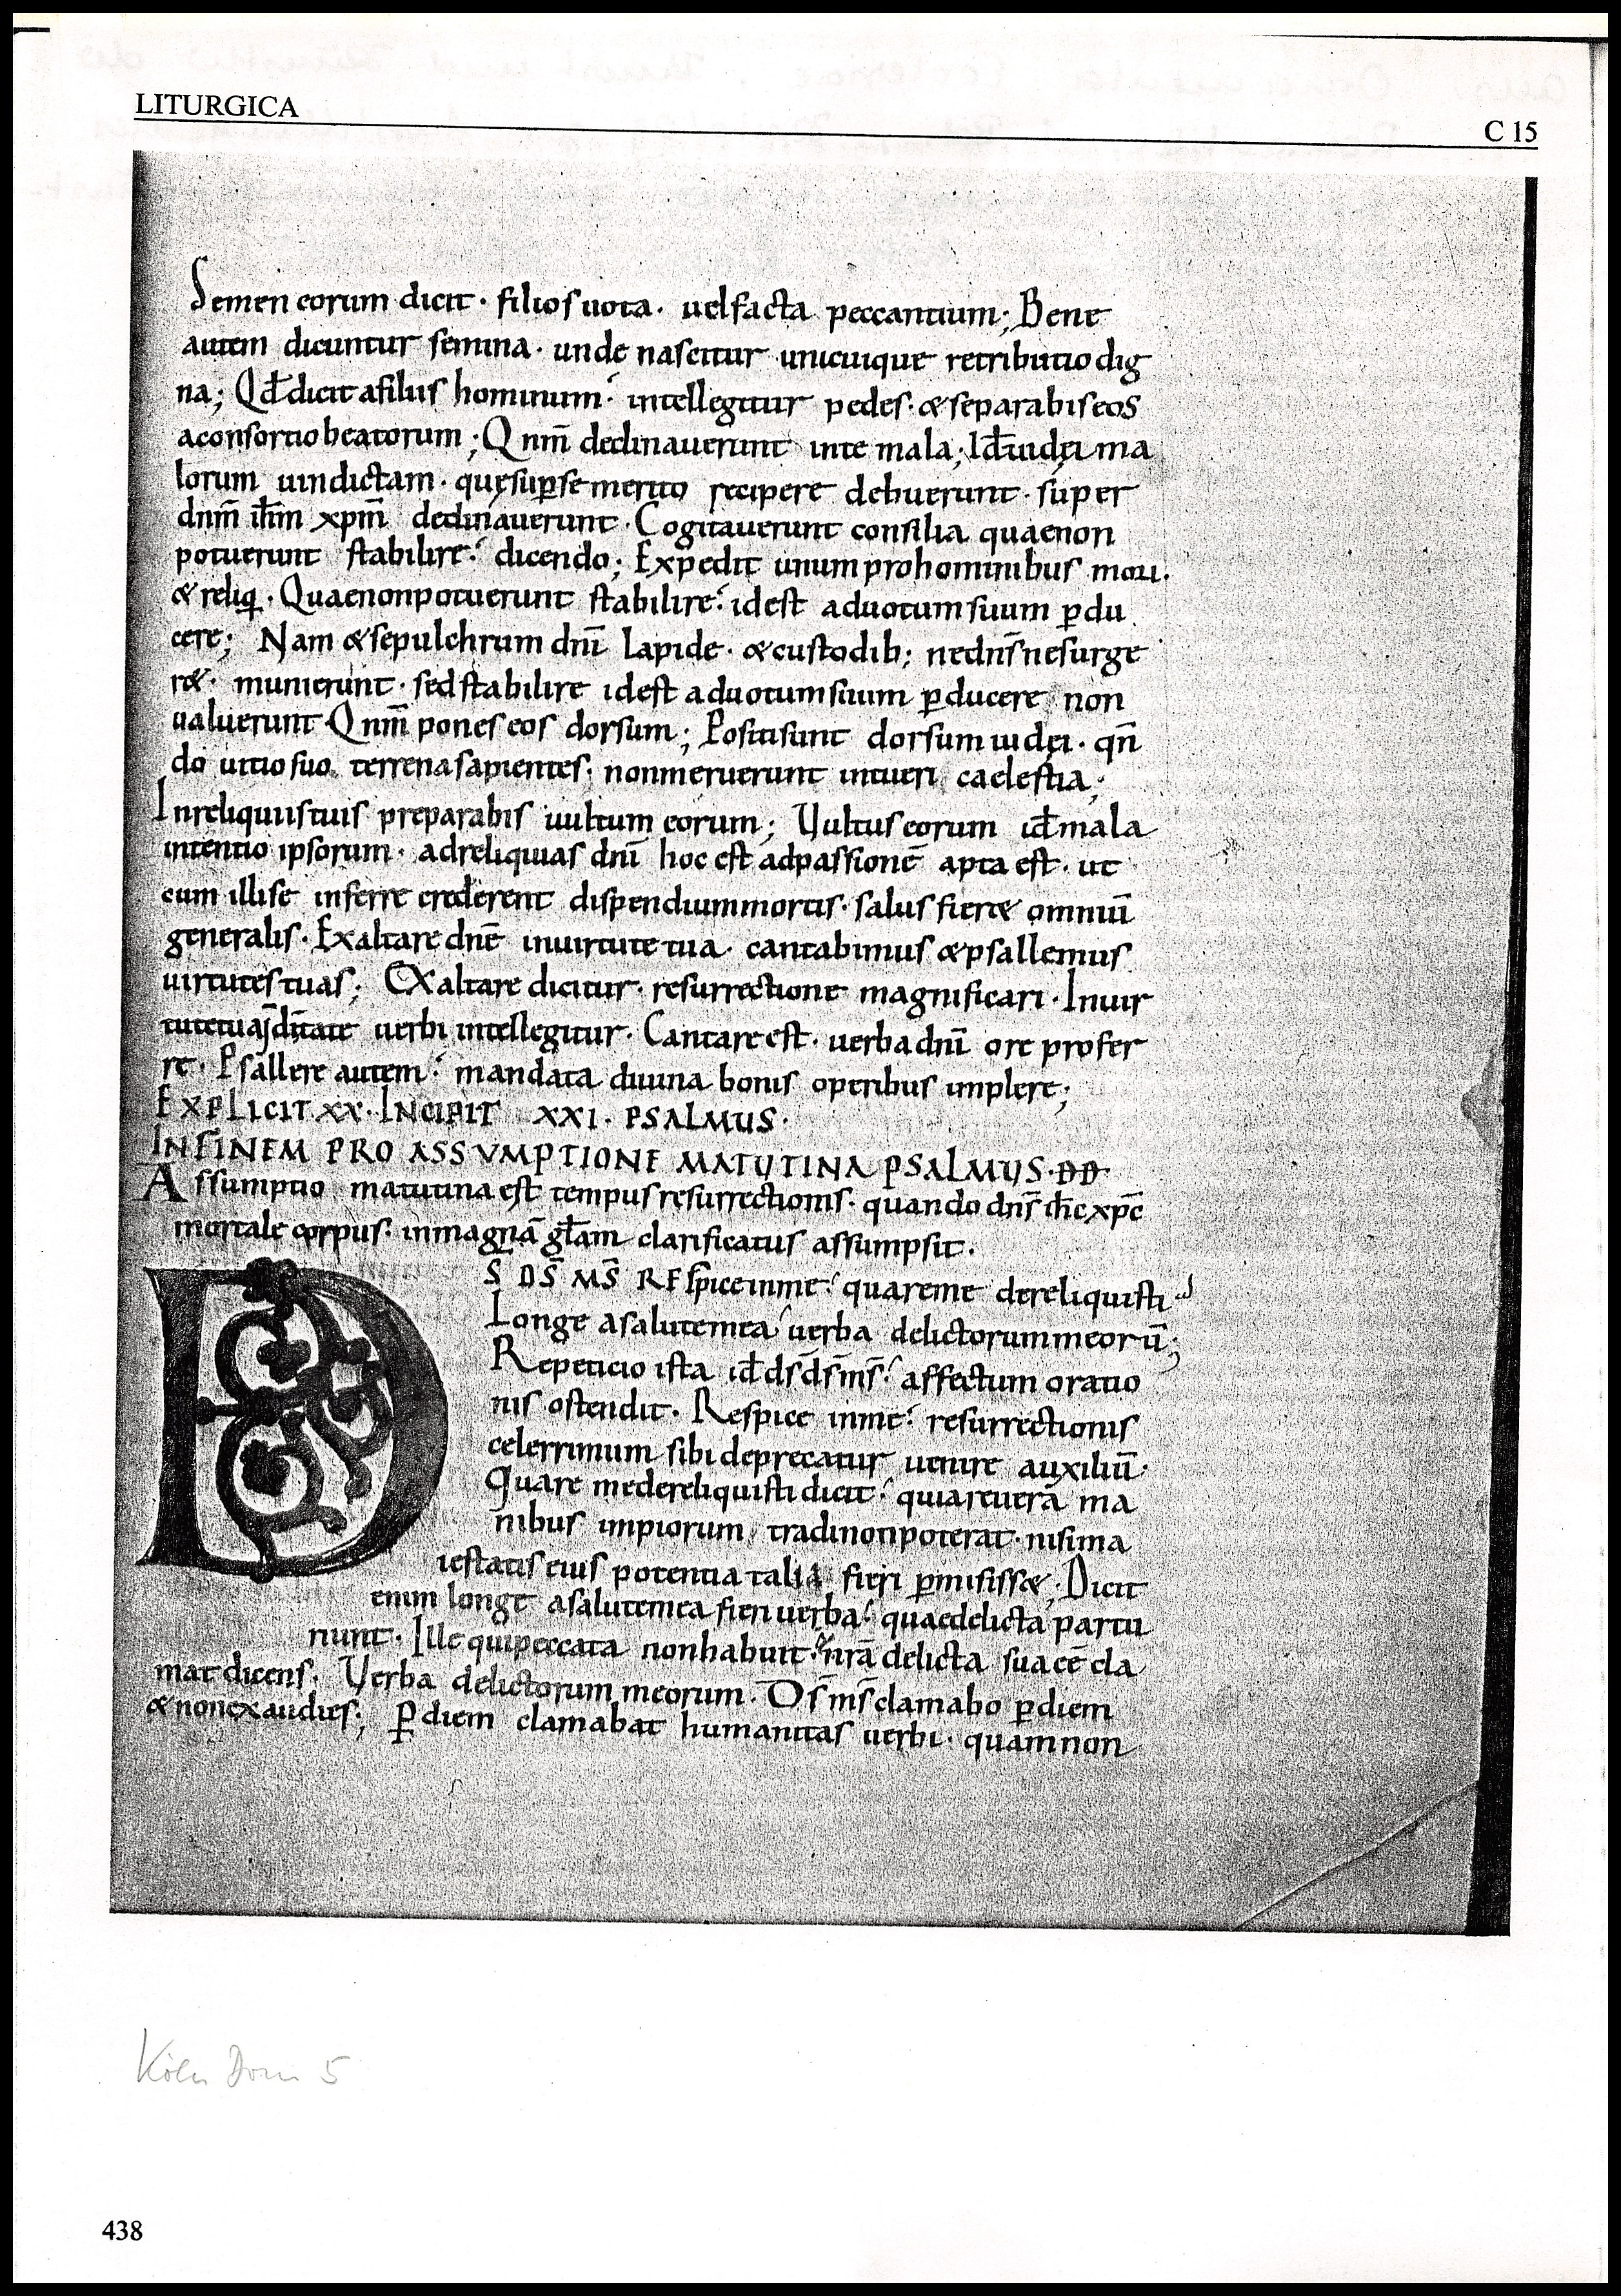 LITURGICA
C 15
Semen eorum dicit · filios uota · uel facta peccantium; Bene
autem dicuntur semina · unde nascitur unicuique retributio dig
na; Qđ dicit afiliis hominum· intellegitur pedes· & separabis eos
aconsortio beatorum; Qnm̄ declinauerunt inte mala; Id iudęi ma
lorum uindictam · quę sup se merito recipere debuerunt · super
dnm̄ ihm̄ xpm̄ declinauerunt · Cogitauerunt consilia quaenon
potuerunt stabilire· dicendo; Expedit unum prohominibus mori·
& reliq · Quaenonpotuerunt stabilire· idest aduotum suum pdu
cere; Nam & sepulchrum dnī lapide · & custodib; nednsnesurge
r& · munierunt · sed stabilire idest aduotum suum pducere non
ualuerunt Qnm̄ pones eos dorsum; Positi sunt dorsum iudęi · qn̄
do uitio suo terrena sapientes · nonmeruerunt intueri caelestia;
Inreliquiis tuis preparabis uultum eorum; Uultus eorum idmala
intentio ipsorum · adreliquias dnī hoc est adpassionē apta est · ut
cum illi se inferre crederent dispendium mortis · salus fier& omniū
generalis · Exaltare dnē inuirtute tua · cantabimus & psallemus
uirtutes tuas; Exaltare dicitur · resurrectione magnificari · Inuir
tutetua, dītate uerbi intellegitur · Cantare est · uerba dnī ore profer
re · Psallere autem· mandata diuina bonis operibus implere;
EXPLICIT XX · INCIPIT XXI · PSALMUS ·
INFINEM PRO ASSVMPTIONE MATUTINA PSALMUS · DD
Assumptio matutina est tempus resurrectionis · quando dnś ihc xpc
mortale corpus · inmagnā głam clarificatus assumpsit ·
DS DS̄ MS̄ RESpiceinme· quareme dereliquisti
Longe asalutemea uerba delictorummeorū;
Repeticio ista id ds̄ ds̄ ms̄· affectum oratio
nis ostendit · Respice inme· resurrectionis
celerrimum sibi deprecatur uenire auxiliū ·
Quare medereliquisti dicit· quiareuerā ma
nibus impiorum tradinonpoterat · nisi ma
iestatis eius potentia talia fieri pmisiss&; Dicit
enim longe asalutemea fieri uerba· quaedelicta partu
riunt · Ille quipeccata nonhabuit · nrā delicta sua cē cla
mat dicens · Uerba delictorum meorum · Ds̄ ms̄ clamabo pdiem
& nonexaudies; Pdiem clamabat humanitas uerbi · quamnon
Köln Dom 5
438